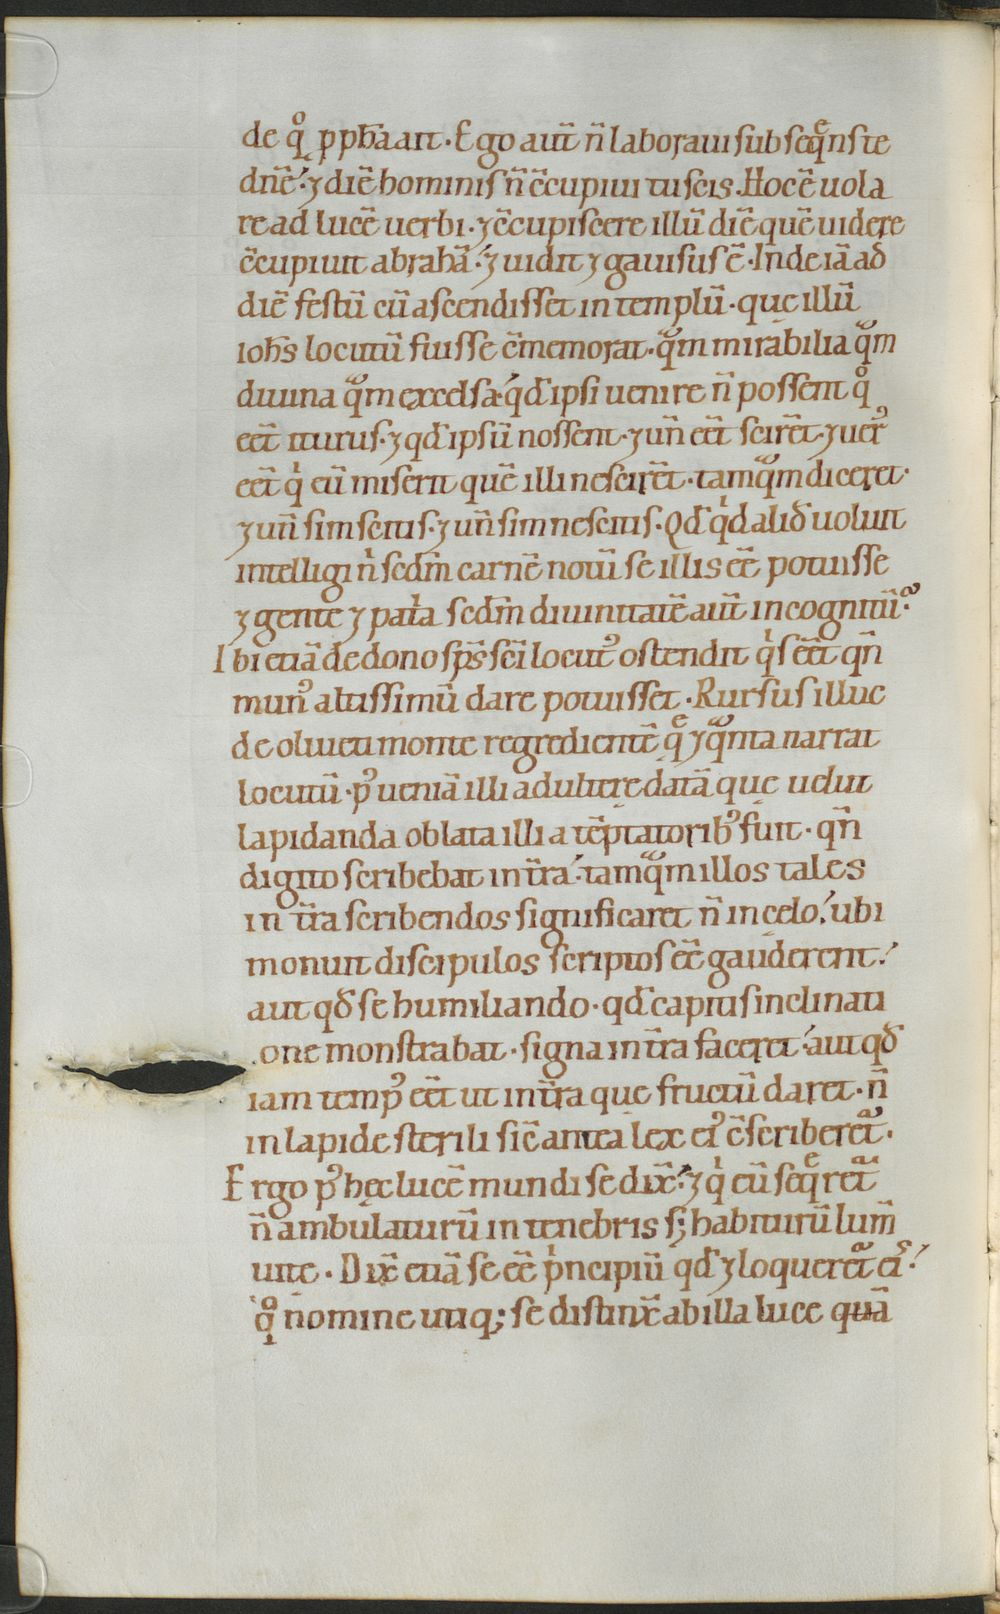 de qͦ p phaait. Ego aut̄ n̄ laboraui subseq̄ns te
dn̄e: ⁊ diē hominis n̄ c̄cupiui tu scis. Hoc ē uola
re ad lucē uerbi. ⁊ c̄cupiscere illū diē quē uidere
c̄cupiuit abrahā: ⁊ uidit ⁊ gauisus ē. Inde iā ad
diē festū cū ascendisset in templū. quę illū
ioh̄s locutū fuisse c̄memorat. qᵃm mirabilia qᵃm
diuina qᵃm excelsa: qd̄ ipsi uenire n̄ possent qͦ
eēt iturus. ⁊ qd̄ ipsū nossent. ⁊ un̄ eēt scirēt. ⁊ uerꝰ
eēt qⁱ eū miserit quē illi nescirēt. tamqᵃm diceret.
⁊ un̄ sim scitis. ⁊ un̄ sim nescitis. Qd̄ qⁱd aliđ uoluit
intelligi nⁱ scdm̄ carnē notū se illis eē potuisse
⁊ gente ⁊ patⁱa scdm̄ diuinitatē aut̄ incognitū?
Ibi etiā de dono sp̄s sc̄i locutꝰ ostendit qⁱs eēt qn̄
munꝰ altissimū dare potuisset. Rursus illuc
de oliueti monte regredientē qͤ ⁊ qᵃnta narrat
locutū. pꝰ ueniā illi adulterę datā quę uelut
lapidanda oblata illi a tēptatoribꝰ fuit. qn̄
digito scribebat in t̄ra: tamqᵃm illos tales
in t̄ra scribendos significaret n̄ in cęlo: ubi
monuit discipulos scriptos eē gauderent:
aut qđ se humiliando. qd̄ capitis inclinati
one monstrabat. signa in t̄ra faceret: aut qđ
iam tempꝰ eēt ut in t̄ra quę fructū daret. n̄
in lapide sterili sic̄ antea lex eiꝰ c̄scriberetᵃ.
Ergo pꝰ hęc lucē mundi se dix̄: ⁊ qⁱ eū seqͤretᵃ
n̄ ambulaturū in tenebris s; habiturū lum̄
uitę. Dix̄ etiā se eē pⁱncipiū qd̄ ⁊ loqueretᵃ eiˢ:
qͦ nomine utiq; se distinx̄ ab illa luce quā